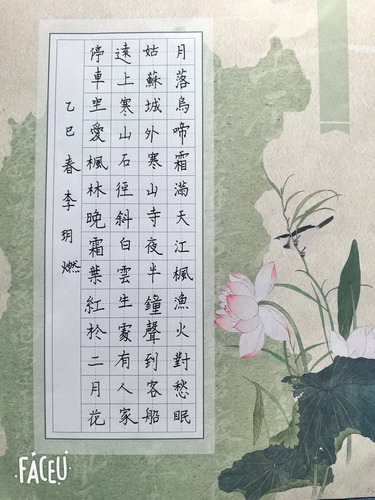 月落烏啼霜滿天江楓漁火對愁眠
姑蘇城外寒山寺夜半鐘聲到客船
遠上寒山石徑斜白雲生處有人家
停車坐愛楓林晚霜葉紅於二月花
乙巳春李玥燃
FACEU